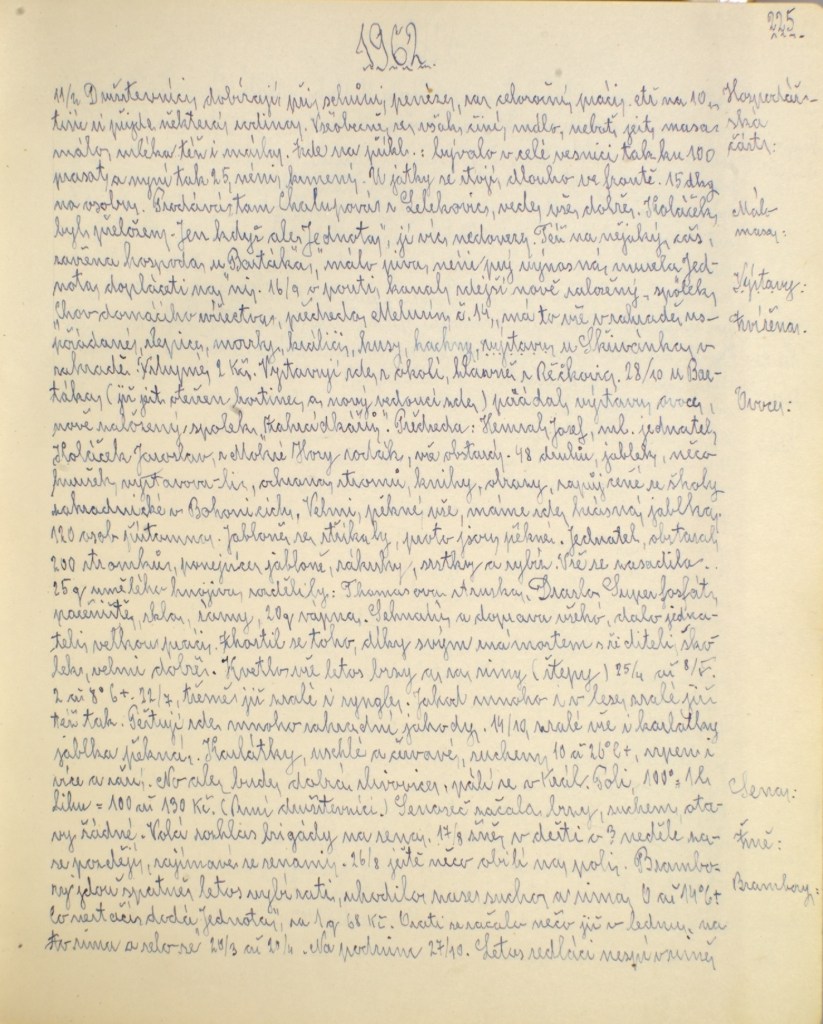 225.
1962.
11/2 Družstevníci dobírají při schůzi peněz, za celoroční práci. až na 10
tisíc přijde některá rodina. Všeobecně se však činí málo, neboť jest masa
málo mléka též i másla. Zde na příkl.: bývalo v celé vesnici tak ku 100
prasat, a nyní tak 25, není krmení. U jatky se stojí dlouho ve frontě. 15 dkg
na osobu. Prodává tam Chalupová z Lelekovic, vede vše dobře. Koláček,
byl přeložen. Jen když ale „Jednota", jí víc nedoveze. Též na nějaký čas,
zavřena hospoda u „Bartáka", málo piva, není prý výnosná musela Jed-
nota dopláceti na ni. 16/9 o pouti konal zdejší nově založený, spolek,
„Chov domácího zvířectva, předseda Meluzín č. 14, má to vše v zahradě us-
pořádané, slepice, morky, králíci, husy, kachny, výstavu u Skřivánka v
zahradě. Vstupné 2 Kčs. Vystavují zde z okolí, hlavně z Řečkovic. 28/10 u Bar-
táka (již jest otevřen hostinec a nový vedoucí zde) pořádal výstavu ovoce,
nově založený spolek „Zahrádkářů". Předseda: Hemzal Josef, ml. jednatel,
Koláček Jaroslav, z Mokré Hory rodák, vše obstará. 48 druhů, jablek, něco
hrušek, vystavova-li, ochrana stromů, knihy, obrazy, zapůjčené ze školy
zahradnické v Bohunicích. Velmi, pěkné, vše, máme zde krásná jablka.
120 osob přítomno. Jabloně se stříkaly, proto jsou pěkné. Jednatel, obstaral
200 stromků, ponejvíce jabloně, zákrsky, srstky a rybíz. Vše se zasadilo.
25 q umělého hnojiva rozdělily: Thomasova struska, Draslo Superfosfát,
pařeniště, skla, rámy, 20 q vápna. Sehnání a doprava všeho, dalo jedna-
teli velkou práci. Zhostil se toho, díky svým známostem s řediteli, ško-
lek, velmi dobře. Kvetlo vše letos brzy a za zimy (štepy) 25/4 až 8/5.
2 až 8° C+. 22/7, třešně již zralé i ryngle. Jahod mnoho i v lese, zralé již
též tak. Pěstují zde mnoho zahradní jahody. 14/10 zralé vše i karlátky
jablka pěkná. Karlátky, uschlé a červavé, suchem, 10 a 26° C+, srpen i
více a září. No ale, bude, dobrá slivovice, pálí se v Král. Poli, 100° = 1 l.
liku = 100 až 130 Kč. (Není družstevníci.) Senoseč začala brzy, suchem, ota-
vy žádné. Volá rozhlas brigády na sena. 17/8 žně, v dešti o 3 neděle za-
se později, zajímavé se senami. 26/8 ještě něco obilí na poli. Brambo-
ry jdou špatně letos vybírati, uhodilo zase sucho, a zima 0 až 14° C+
Co nestačí dodá „Jednota", za 1 q 68 Kč. Orati se začalo něco již v lednu, na
to zima a selo se 20/3 až 20/4. Na podzim 27/10. Letos sedláci nespí v zimě
Hospodář-
ská
část:
Málo
masa:
Výstavy:
Zvířena.
Ovoce:
Sena:
Žně:
Brambory: